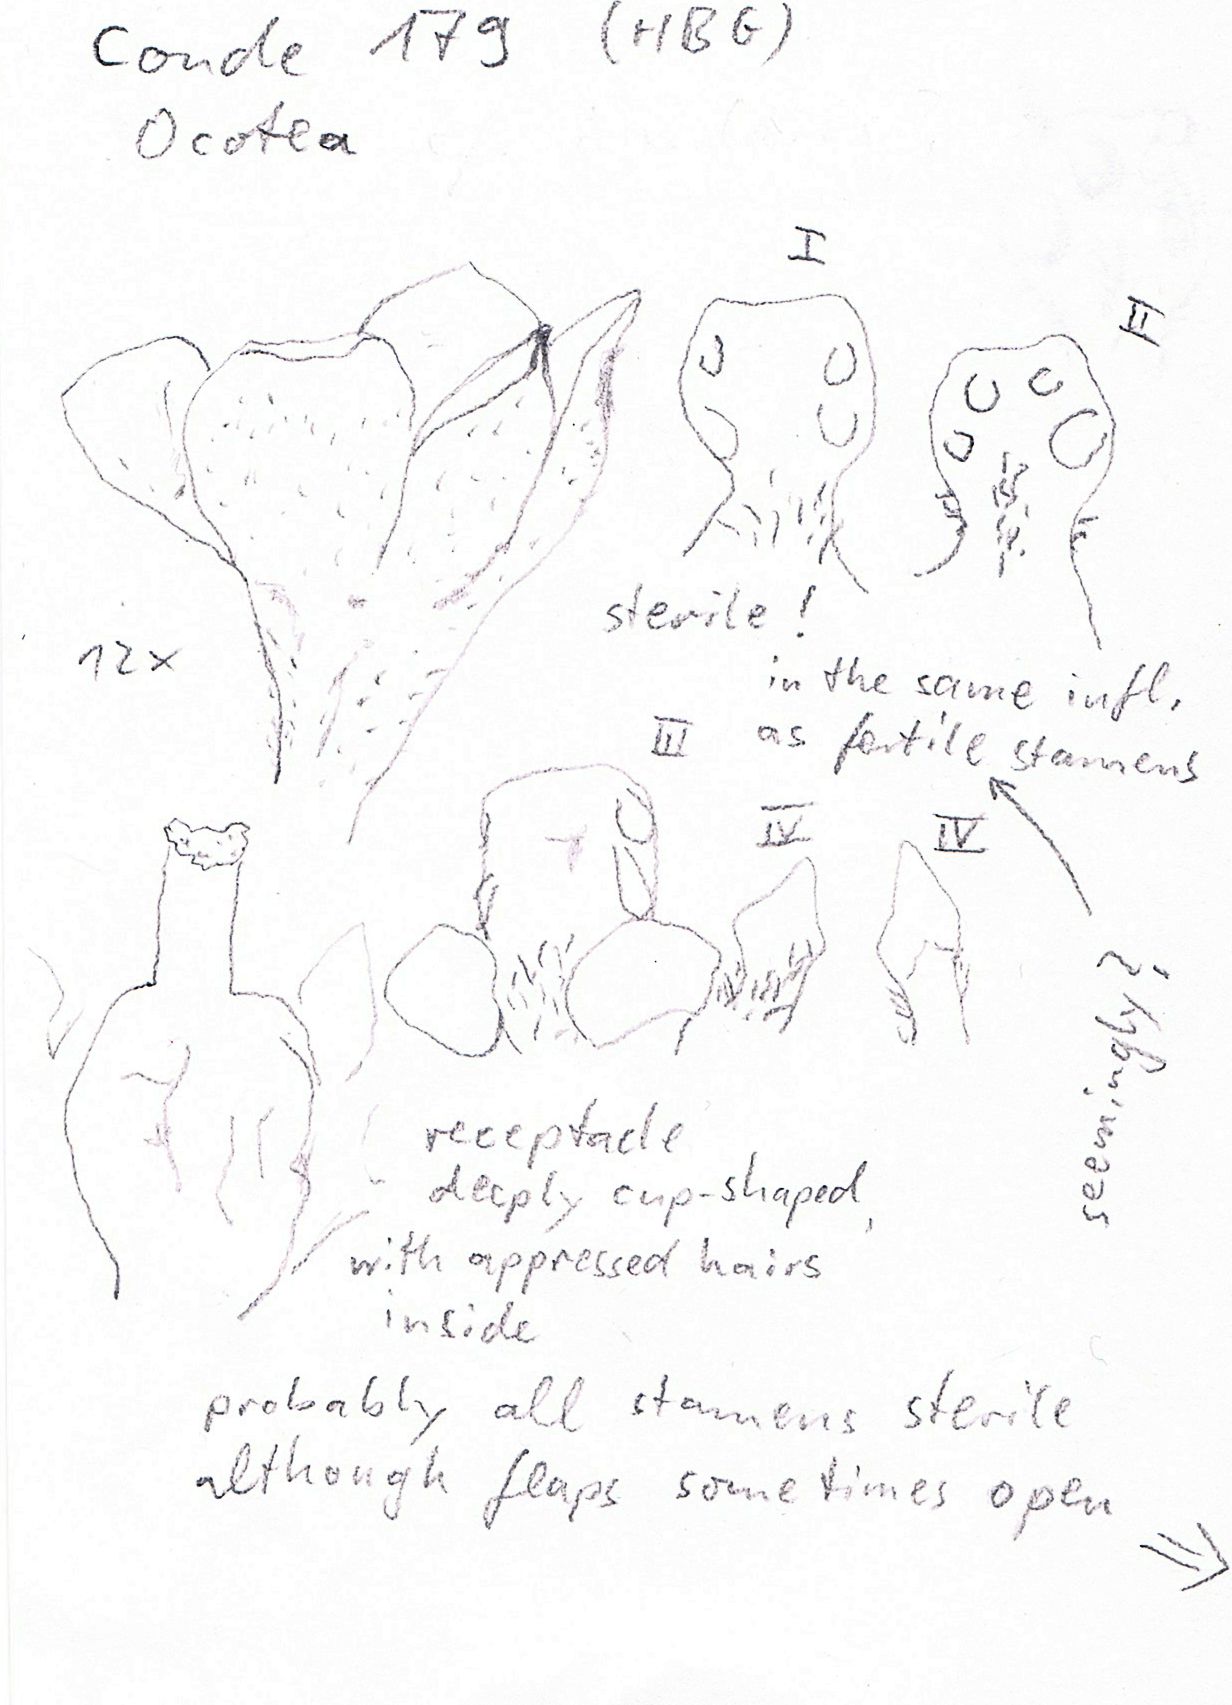 Conde 179 (HBG)
Ocotea
I
II
12x
sterile!
in the same infl.
as fertile stamens
III
IV
IV
seemingly?
receptacle
deeply cup-shaped,
with appressed hairs
inside
probably all stamens sterile
although flaps sometimes open